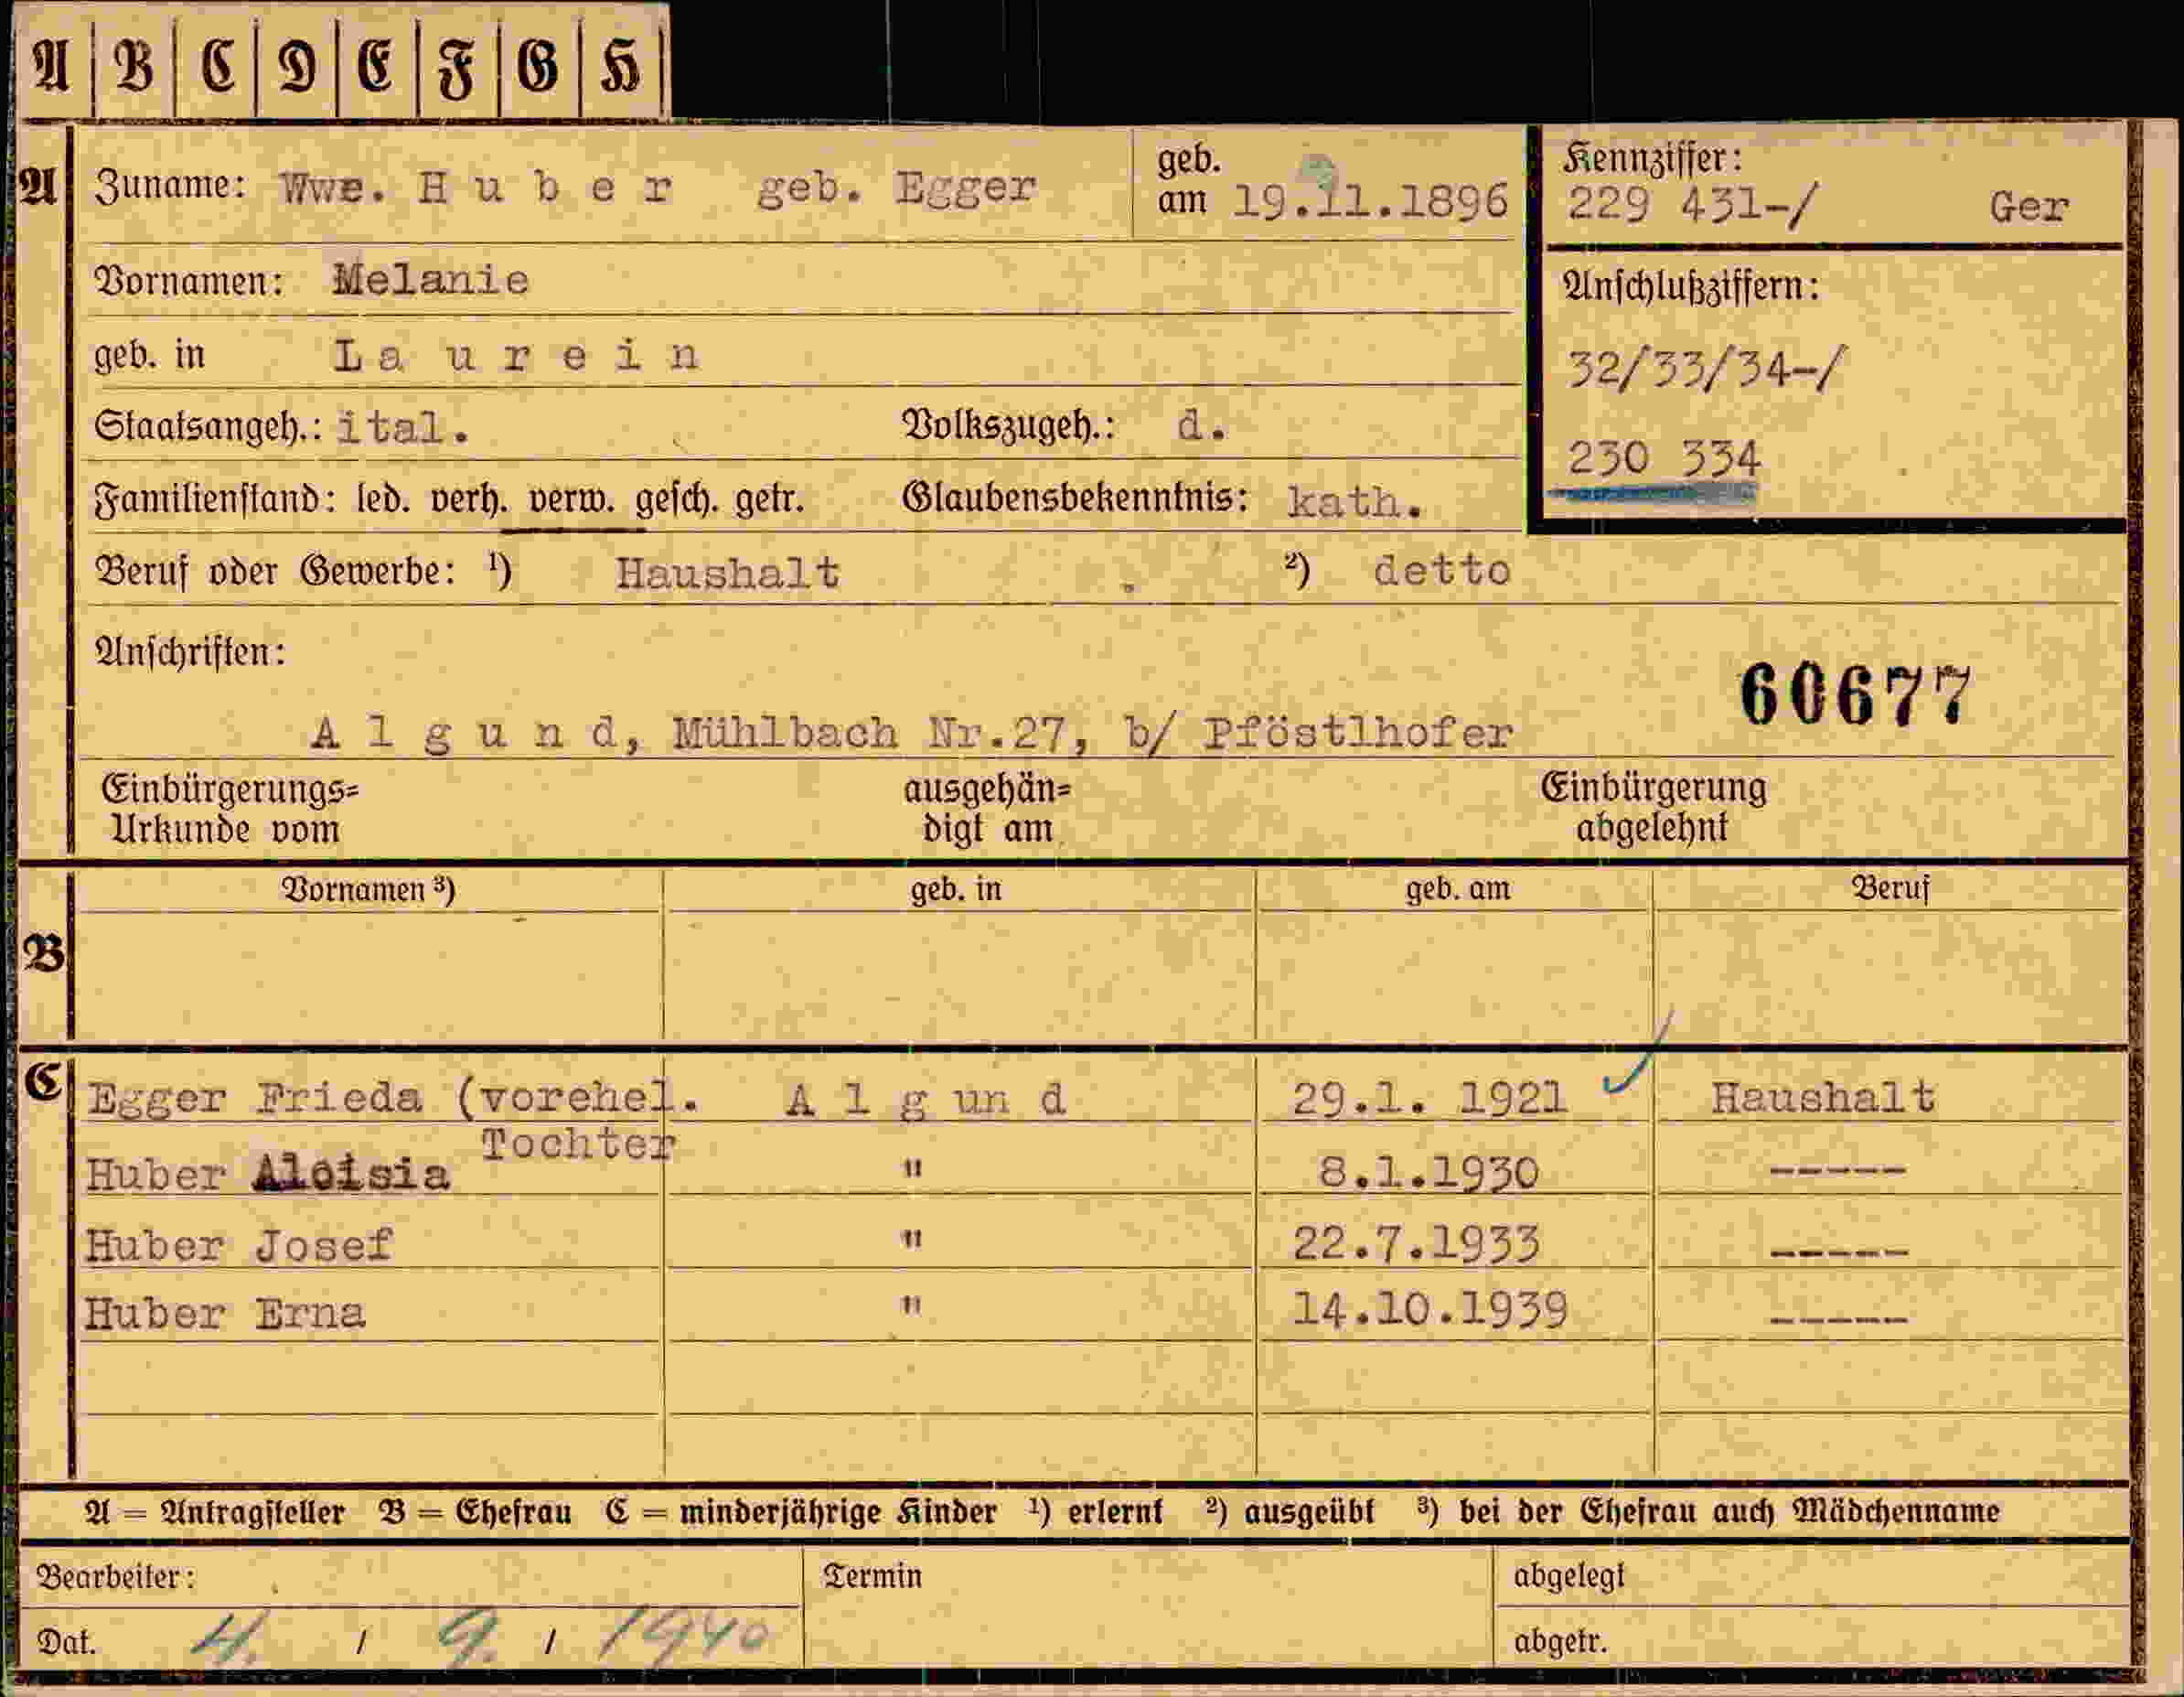 A B C D E F G H
A Zuname: Wwe. H u b e r geb. Egger geb. am 19.11.1896 Kennziffer: 229 431-/ Ger
Vornamen: Melanie Anschlußziffern:
geb. in L a u r e i n 32/33/34-/
Staatsangeh.: ital. Volkszugeh.: d. 230 334
Familienstand: led. verh. verw. gesch. getr. Glaubensbekenntnis: kath.
Beruf oder Gewerbe: ¹) Haushalt ²) detto
Anschriften: 60677
A l g u n d, Mühlbach Nr.27, b/ Pföstlhofer
Einbürgerungs= ausgehän= Einbürgerung
Urkunde vom digt am abgelehnt
Vornamen ³) geb. in geb. am Beruf
B
C Egger Frieda (vorehel. A l g un d 29.1. 1921 Haushalt
Tochter
Huber Aloisia " 8.1.1930 -----
Huber Josef " 22.7.1933 -----
Huber Erna " 14.10.1939 -----
A = Antragsteller B = Ehefrau C = minderjährige Kinder ¹) erlernt ²) ausgeübt ³) bei der Ehefrau auch Mädchenname
Bearbeiter: Termin abgelegt
Dat. 4. / 9. / 1940 abgetr.